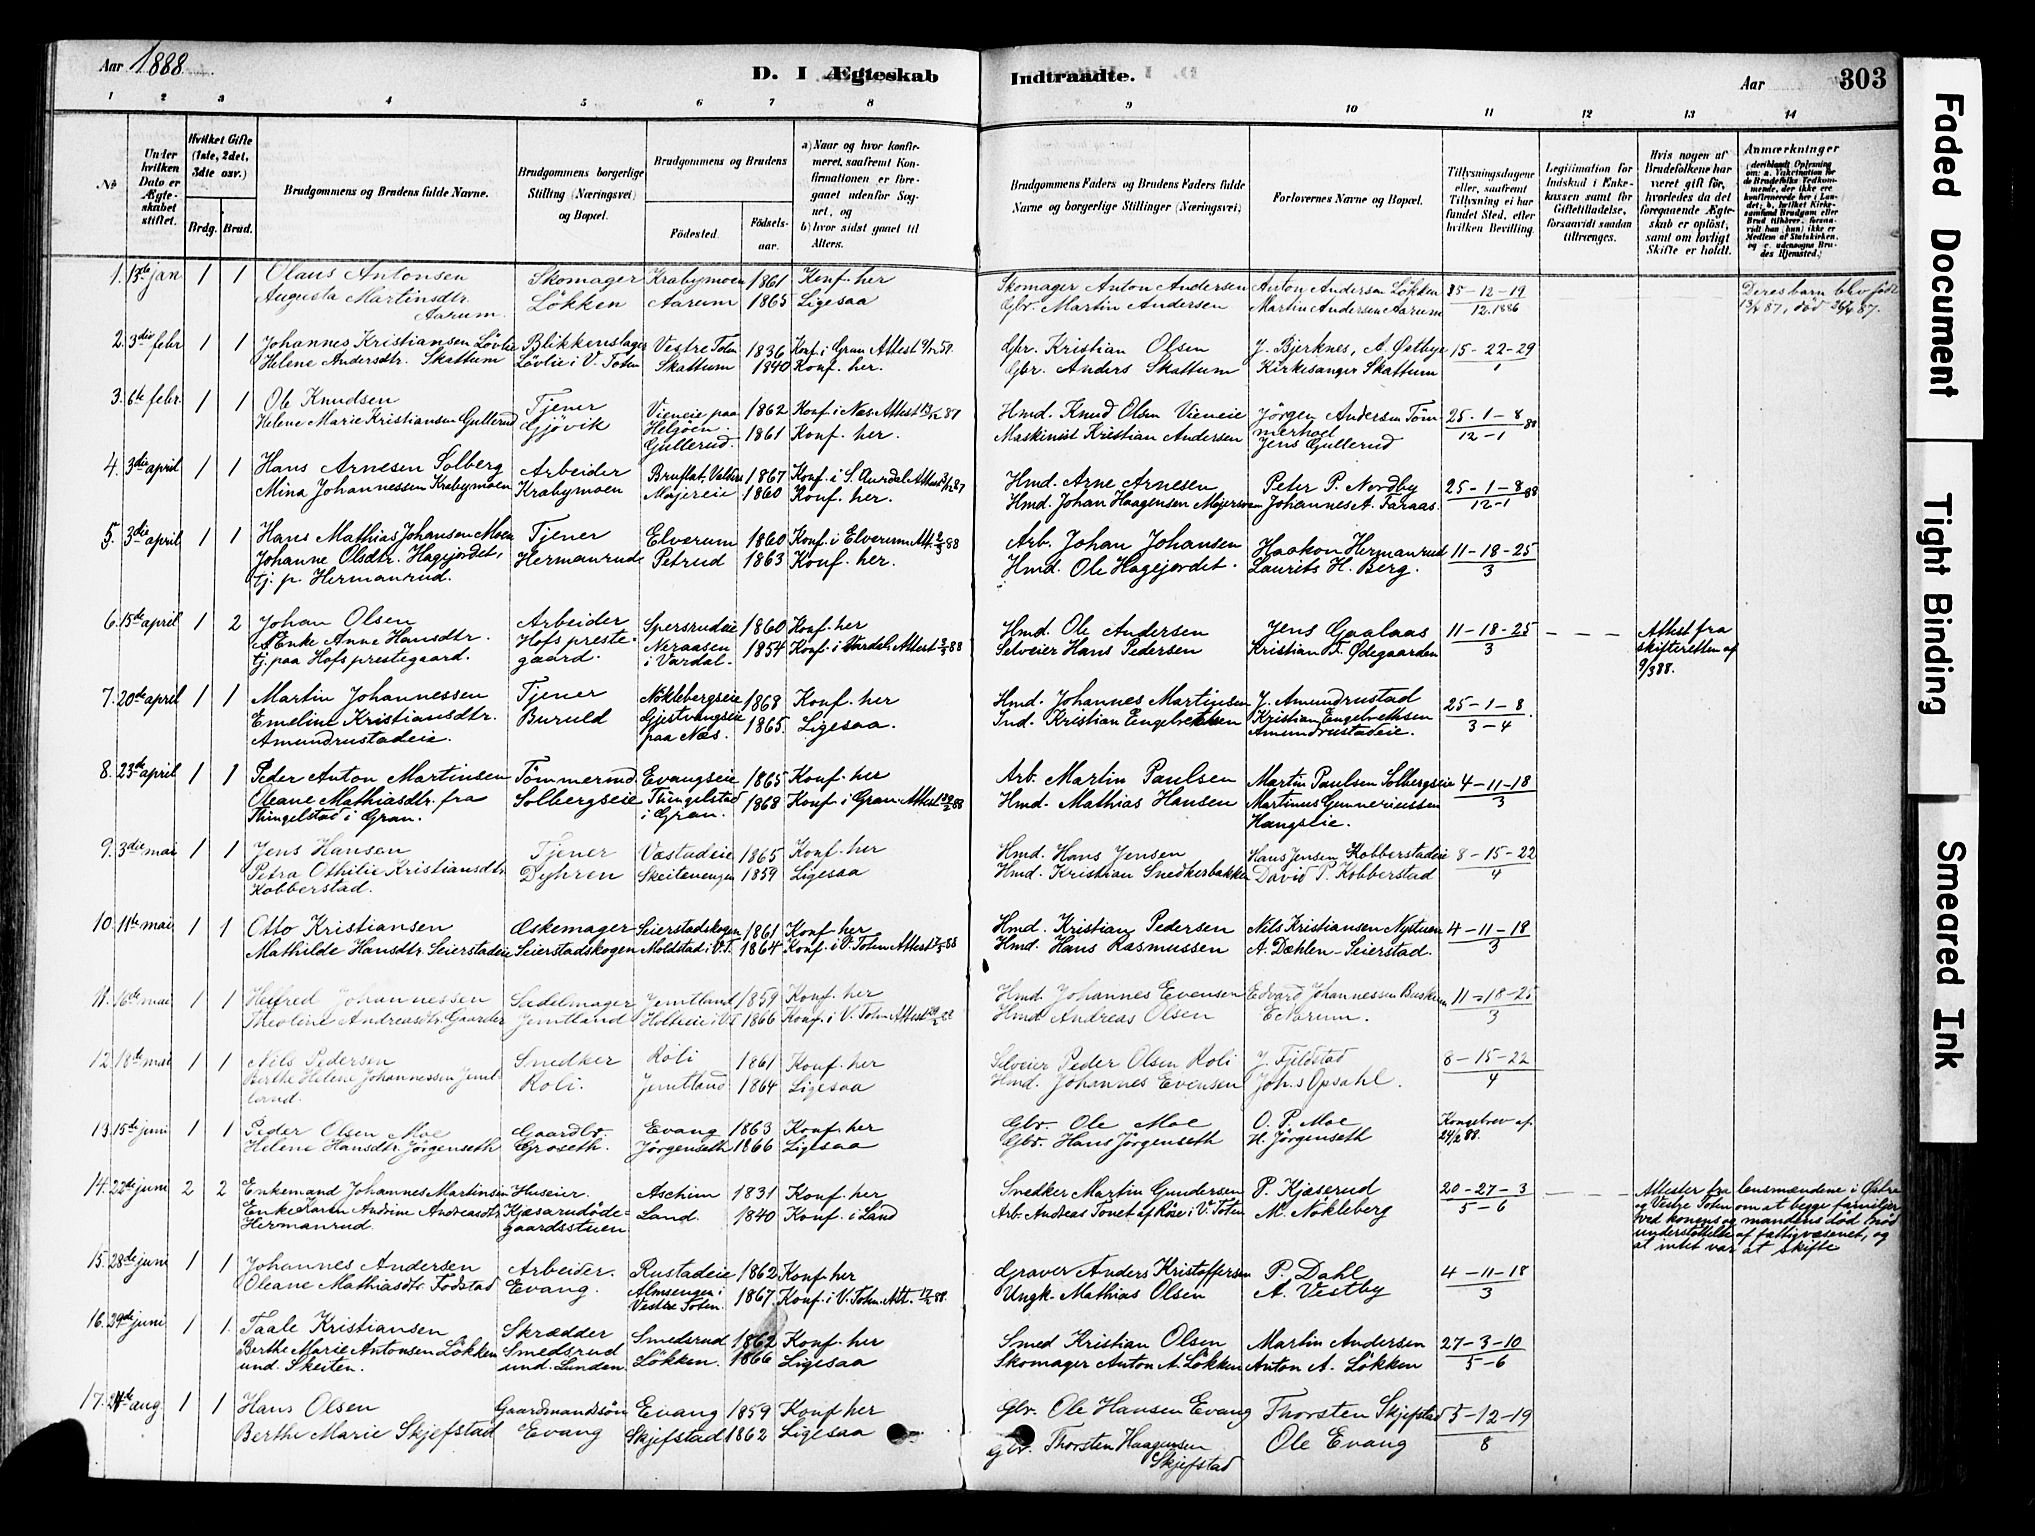 Aar 1888
D. I Ægteskab Indtraadte.
Aar 303
1 2 3 4 5 6 7 8 9 10 11 12 13 14
№
Under hvilken Dato er Ægteskabet stiftet.
Hvilket Gifte (1ste, 2det, 3die osv.)
Brdg. Brud.
Brudgommens og Brudens fulde Navne.
Brudgommens borgerlige Stilling (Næringsvei) og Bopæl.
Brudgommens og Brudens
Fødested.
Fødselsaar.
a) Naar og hvor konfirmeret, saafremt Konfirmationen er foregaaet udenfor Sognet, og
b) hvor sidst gaaet til Alters.
Brudgommens Faders og Brudens Faders fulde Navne og borgerlige Stillinger (Næringsvei)
Forlovernes Navne og Bopæl.
Tillysningsdagene eller, saafremt Tillysning ei har fundet Sted, efter hvilken Bevilling.
Legitimation for Indskud i Enkekassen samt for Giftetilladelse, forsaavidt saadan tiltrænges.
Hvis nogen af Brudefolkene har været gift før, hvorledes da det foregaaende Ægteskab er opløst, samt om lovligt Skifte er holdt.
Anmærkninger
1. 13de jan 1 1 Olaus Antonsen Skomager Krabymoen 1861 Konf. her Skomager Anton Andersen Anton Andersen Løkken 85-12-19
Augusta Martinsdtr. Aarum. Løkken Aarum 1865 Ligesaa Gbr. Martin Andersen Martin Andersen Aarum 12.1886
Deres barn blev født 13/4 87, død 26/4 87.
2. 3die febr 1 1 Johannes Kristiansen Løvlie Blikkenslager Vestre Toten 1836 Konf. i Gran Attest Gbr. Kristian Olsen J. Bjerknes, A. Østbye 15-22-29
Helene Andersdtr. Skattum Løvlie i V. Toten Skattum 1840 Konf. her. Gbr. Anders Skattum Kirkesanger Skattum 1
3. 6te febr. 1 1 Ole Knudsen Tjener Vieneie paa Helgøen 1862 Konf. i Næs. Attest 13/12 87 Hmd. Knud Olsen Vieneie Jørgen Andersen Tømmerhoel 25-1-8
Helene Marie Kristiansen Gullerud Gjøvik Gullerud 1861 Konf. her. Maskinist Kristian Andersen Jens Gullerud 12-1 88
4. 3die april 1 1 Hans Arnesen Solberg Arbeider Bruflat, Valders 1867 Konf. i S. Aurdal Attest Hmd. Arne Arnesen Peter P. Nordby 25-1-8
Mina Johannessen Krabymoen Krabymoen Mejereie 1860 Konf. her. Hmd. Johan Haagensen Johannes A. Faraas. 12-1 88
5. 3die april 1 1 Hans Mathias Johansen Moen Tjener Elverum 1860 Konf. i Elverum. Att. 2/3 88 Arb. Johan Johansen Haakon Hermanrud 11-18-25
Johanne Olsdtr. Hagejordet, Hermanrud Petrud 1863 Konf. her. Hmd. Ole Hagejordet. Laurits H. Berg. 3
tj. p. Hermanrud.
6. 15de april 1 2 Johan Olsen Arbeider Spersrudeie 1860 Konf. her Hmd. Ole Andersen Jens Gaalaas 11-18-25 - - - Attest fra
Enke Anne Hansdtr. Hofs prestegaard. Neraasen i Vardal. 1854 Konf. i Vardal. Attest 3/2 88 Selveier Hans Pedersen Kristian F. Ødegaarden 3 skifteretten af
tj. paa Hofs prestegaard. 9/3 88.
7. 20de april 1 1 Martin Johannessen Tjener Nøklebergseie 1868 Konf. her Hmd. Johannes Martinsen J. Amundrustad 25-1-8
Emeline Kristiansdtr. Buruld Gjestvangseie paa Næs. 1865. Ligesaa. Ind. Kristian Engebretsen Kristian Engebrethsen 3-4
Amundrustadeie. Amundrustadeie.
8. 23de april 1 1 Peder Anton Martinsen Tømmermd. Evangseie 1865 Konf. her Arb. Martin Paulsen Martin Paulsen Solbergseie 4-11-18
Oleane Mathiasdtr. fra Solbergseie Thingelstad i Gran. 1868 Konf. i Gran. Attest Hmd. Mathias Hansen Martinus Gunneriussen 3
Thingelstad i Gran. Hangseie.
9. 3die mai 1 1 Jens Hansen Tjener Væstadeie 1865 Konf. her Hmd. Hans Jensen Hans Jensen Kobberstadeie 8-15-22
Petra Othilie Kristiansdtr. Dyhren 1859 Ligesaa Hmd. Kristian Snedkerbakken David P. Kobberstad 4
Kobberstad.
10. 11te mai 1 1 Otto Kristiansen Æskemager Seierstadskogen 1861 Konf her Hmd. Kristian Pedersen Nils Kristiansen Nystuen 4-11-18
Mathilde Hansdtr. Seierstadeie Seierstadskogen Moldstad i V.T. 1864 Konf. i V. Toten Attest Hmd. Hans Rasmussen A. Dæhlen-Seierstad. 3
11. 16de mai 1 1 Helfred Johannessen Sadelmager Jemtland 1859 Konf. her Hmd. Johannes Evensen Edvard Johannessen 11-18-25
Theoline Andreasdtr. Gaarder Jemtland Holteeie i V.T. 1866 Konf. i V. Toten Attest Hmd Andreas Olsen E. Aarum. 3
12. 18de mai 1 1 Nils Pedersen Snedker Roli 1861 Konf. her Selveier Peder Olsen Roli J. Fjeldstad 8-15-22
Berthe Helene Johannessen Jemtland. Roli. Jemtland 1864 Ligesaa Hmd. Johannes Evensen Johs Opsahl. 4
13. 15de juni 1 1 Peder Olsen Moe Gaardbr. Evang 1863 Konf. her Gbr. Ole Moe O. P. Moe Kongebrev af
Helene Hansdtr. Jørgenseth Groseth. Jørgenseth 1866 Ligesaa Gbr. Hans Jørgenseth H. Jørgenseth 24/2 88.
14. 22de juni 2 2 Enkemand Johannes Martinsen Huseier. Aschim 1831 Konf. her Snedker Martin Gundersen P. Kjæserud 20-27-3 - - - Attester fra lensmændene i Østre
Enke Karen Andrine Andreasdtr. Kjæserudødegaardsstuen Land. 1840 Konf. i Land Arb. Andreas Tonet af Røse i V. Toten M. Nøkleberg 5-6 og Vestre Toten om at begge familjer
Hermanrud. ved konens og mandens død nød
understøttelse af fattigvæsenet, og
at intet var at skifte
15. 28de juni 1 1 Johannes Andersen Arbeider. Rustadeie 1862 Konf. her Graver Anders Kristoffersen P. Dahl 4-11-18
Oleane Mathiasdtr. Fodstad Evang. Almsengen i Vestre Toten 1867. Konf. i V. Toten. Att. Ungk. Mathias Olsen A. Vestby 3
16. 29de juni 1 1. Taale Kristiansen Skrædder Smedsrud 1862 Konf. her Smed Kristian Olsen Martin Andersen 27-3-10
Berthe Marie Antonsen Løkken Smedsrud Løkken. 1866 Ligesaa Skomager Anton A. Løkken Anton A. Løkken 5-6
und. Skeiten. und. Lunden.
17. 24de aug 1 1 Hans Olsen Gaardmandssøn Evang 1859 Konf her Gbr. Ole Hansen Evang Thorsten Skjefstad 5-12-19
Berthe Marie Skjefstad Evang Skjefstad 1862 Ligesaa Gbr. Thorsten Haagensen Skjefstad Ole Evang 8
Faded Document
Tight Binding
Smeared Ink